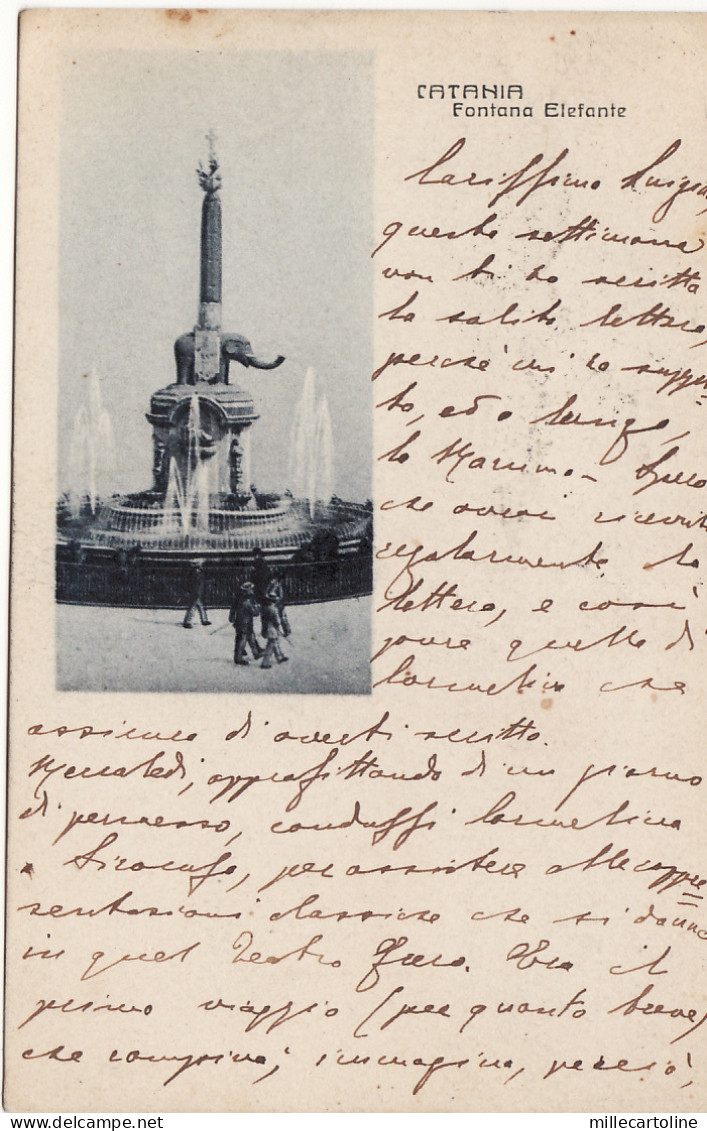 CATANIA
Fontana Elefante
Carissimo Luigi,
questa settimana
non ti ho scritta
la solita lettera,
perchè vi ha suppli-
to, ed a lungo,
la Mamma. Spero
che avrai ricevuto
regolarmente la
lettera, e così
pure quella di
Carmelina che
assicura di averti scritto.
Mercoledì, approfittando di un giorno
di permesso, condussi Carmelina
a Siracusa, per assistere alle rappre
sentazioni classiche che si danno
in quel Teatro Greco. Era il
primo viaggio (per quanto breve)
che compiva; immagina, perciò,
millecartoline
delcampe.net